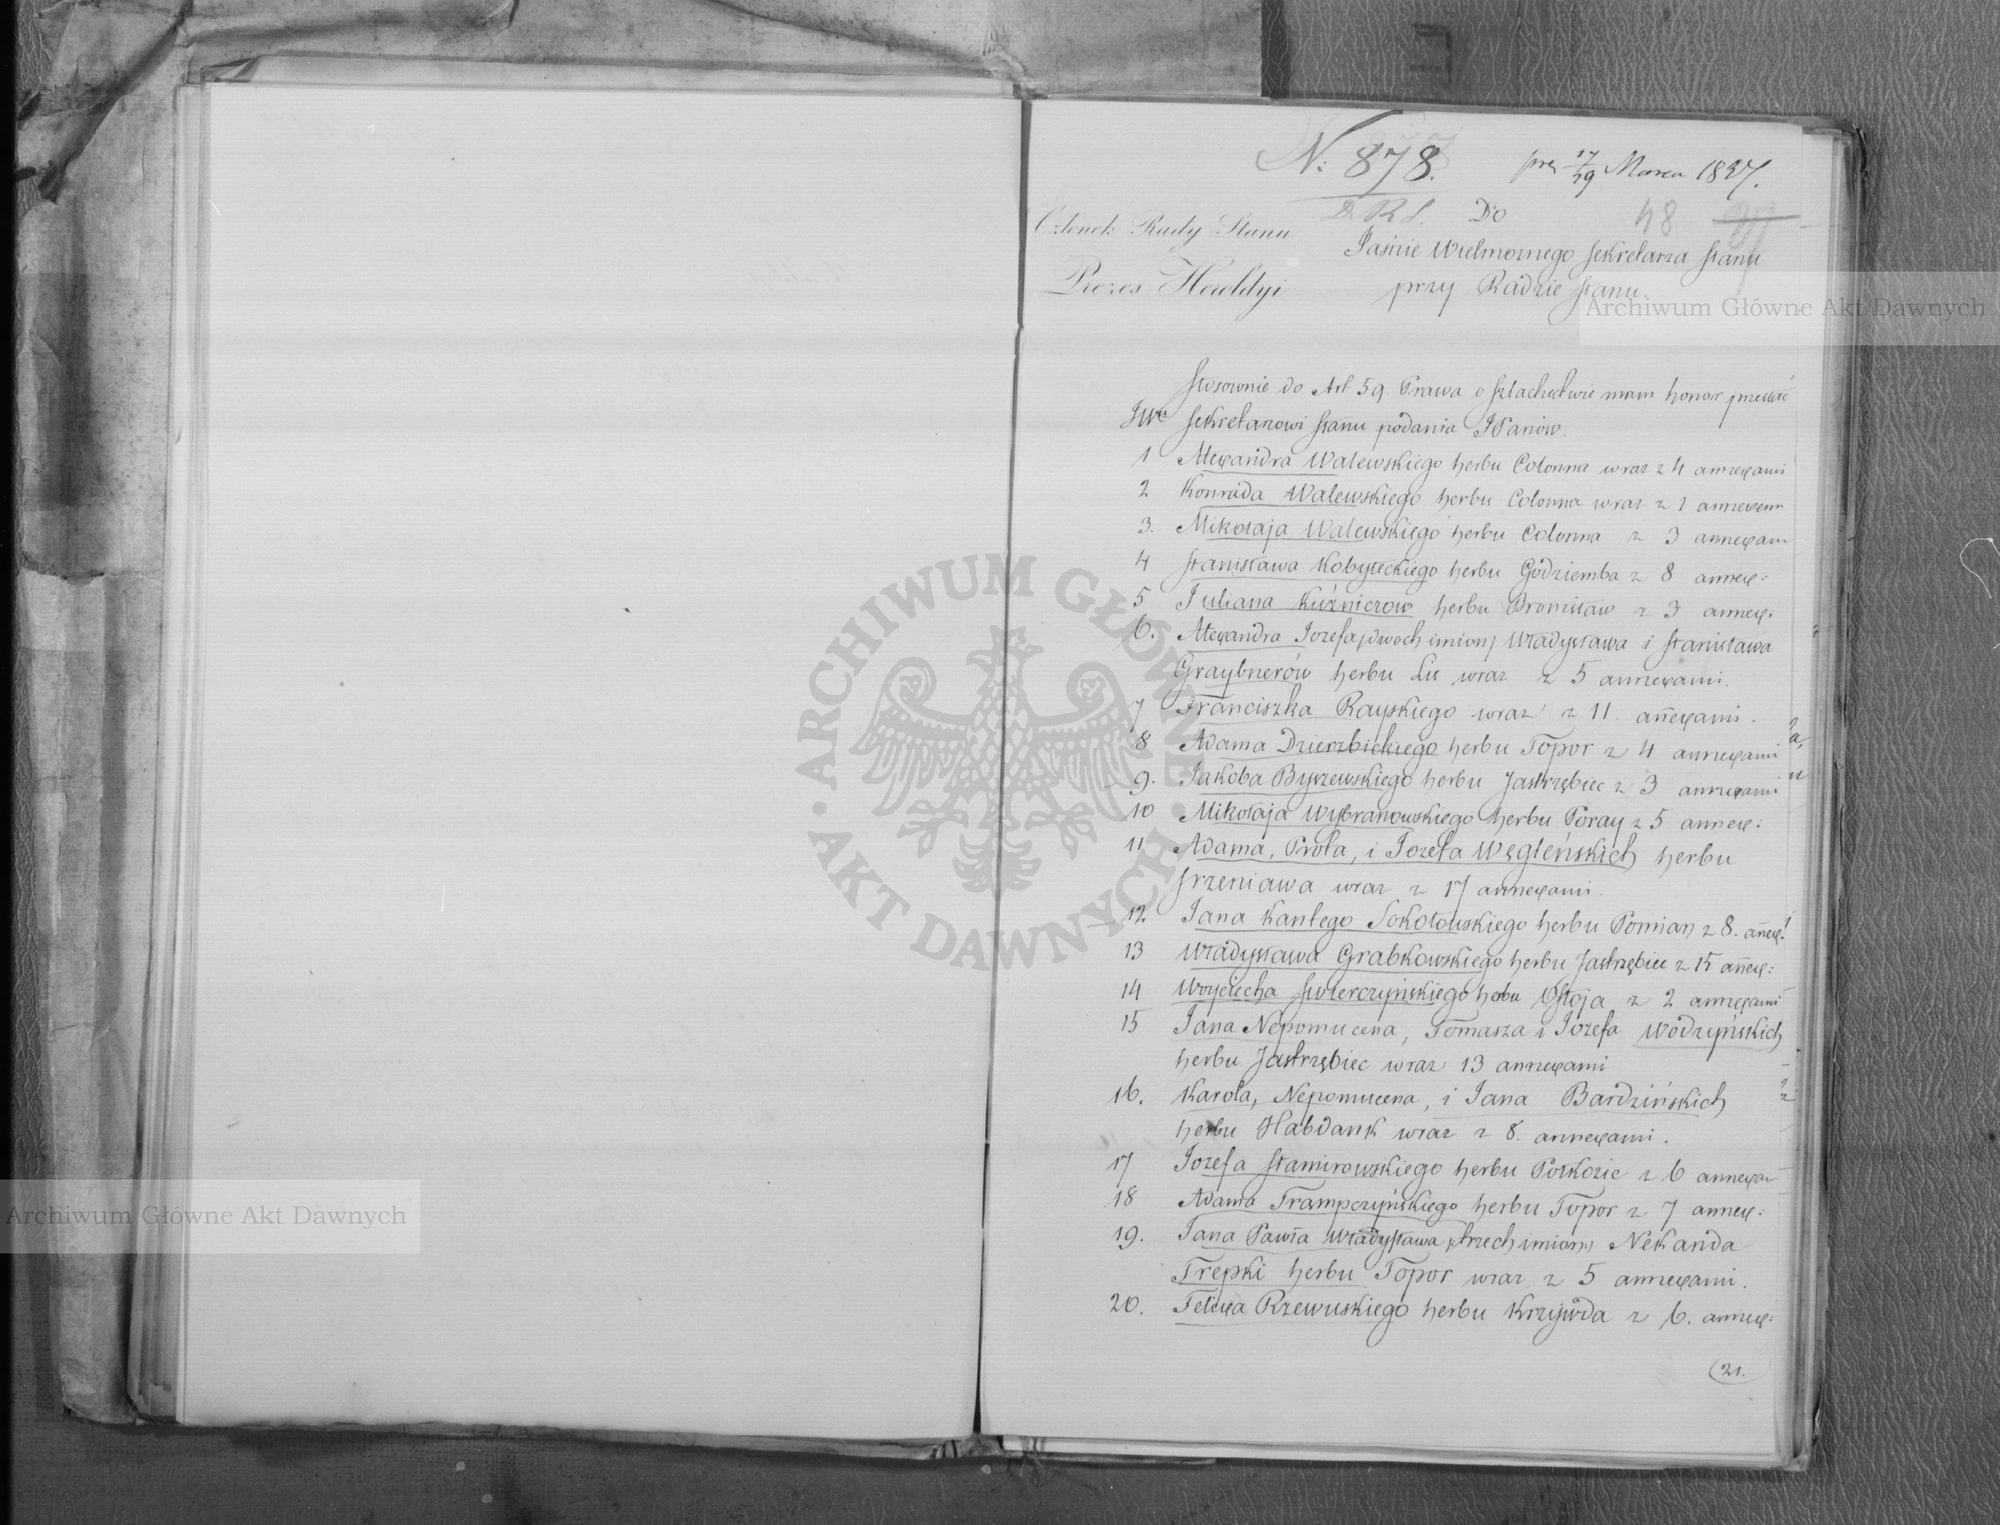 N: 878.
17/29 Marca 1837.
D.R.S. Do
48
Członek Rady Stanu
Jaśnie Wielmożnego Sekretarza Stanu
Prezes Heroldyi
przy Radzie Stanu.
Archiwum Główne Akt Dawnych
Stosownie do Art 59. Prawa o Szlachectwie mam honor przesłać
JWu Sekretarzowi Stanu podania JPanów.
1 Alexandra Walewskiego herbu Colonna wraz z 4 annexami
2 Konrada Walewskiego herbu Colonna wraz z 1 annexem
3. Mikołaja Walewskiego herbu Colonna z 3 annexam
4 Stanisława Kobyłeckiego herbu Godziemba z 8 annex:
5 Juliana Kuźniczow herbu Bronisław z 3 annex:
6. Alexandra Jozefa (dwoch imion) Władysława i Stanisława
Graybnerów herbu Lis wraz z 5 annexami.
7 Franciszka Rayskiego wraz z 11. añexami.
8 Adama Dzierzbickiego herbu Topor z 4 annexami
9. Jakóba Byszewskiego herbu Jastrzębiec z 3 annexami
10 Mikołaja Wybranowskiego herbu Poray z 5 annex:
11 Adama, Prota, i Jozefa Węgleńskich herbu
Srzeniawa wraz z 17 annexami.
12 Jana Kantego Sokołowskiego herbu Pomian z 8. añex:
13 Władysława Grabkowskiego herbu Jastrzębiec z 15 añex:
14 Woyciecha Swierczyńskiego herbu Ostoja z 2 annexami
15 Jana Nepomucena, Tomasza i Jozefa Wodzyńskich
herbu Jastrzębiec wraz 13 annexami
16. Karola, Nepomucena, i Jana Bardzińskich
herbu Habdank wraz z 8. annexami.
17 Jozefa Stamirowskiego herbu Połkozic z 6 annexam
18 Adama Trampczyńskiego herbu Topor z 7 annex:
19. Jana Pawła Władysława (trzech imion) Nekanda
Trepki herbu Topor wraz z 5 annexami.
20. Felixa Rzewuskiego herbu Krzywda z 6. annex:
(21.
ARCHIWUM GŁÓWNE AKT DAWNYCH
Archiwum Główne Akt Dawnych